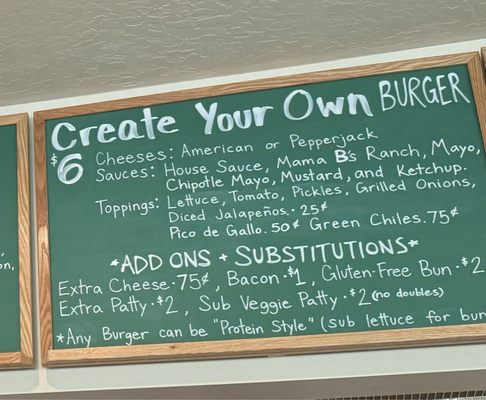 Create Your Own BURGER
$6 Cheeses: American or Pepperjack
Sauces: House Sauce, Mama B's Ranch, Mayo,
Chipotle Mayo, Mustard, and Ketchup.
Toppings: Lettuce, Tomato, Pickles, Grilled Onions,
Diced Jalapeños. 25¢
Pico de Gallo. 50¢ Green Chiles. 75¢
*ADD ONS + SUBSTITUTIONS*
Extra Cheese · 75¢, Bacon · $1, Gluten-Free Bun · $2
Extra Patty · $2, Sub Veggie Patty · $2 (no doubles)
*Any Burger can be "Protein Style" (sub lettuce for bun